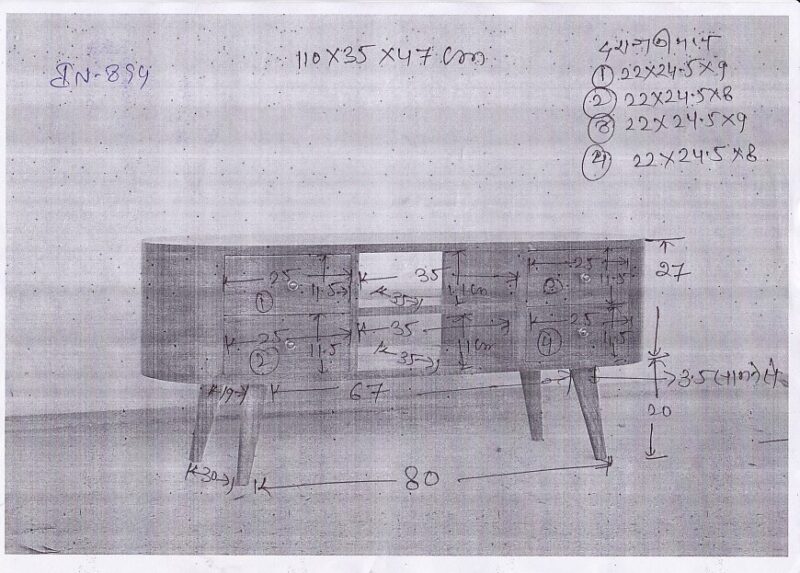 IN-894
110X35X47 cm
① 22X24.5X9
② 22X24.5X8
③ 22X24.5X9
④ 22X24.5X8
25
11.5
①
35
11 cm
35
25
11.5
27
25
11.5
②
35
11 cm
35
④
25
11.5
19
67
3.5
20
30
80